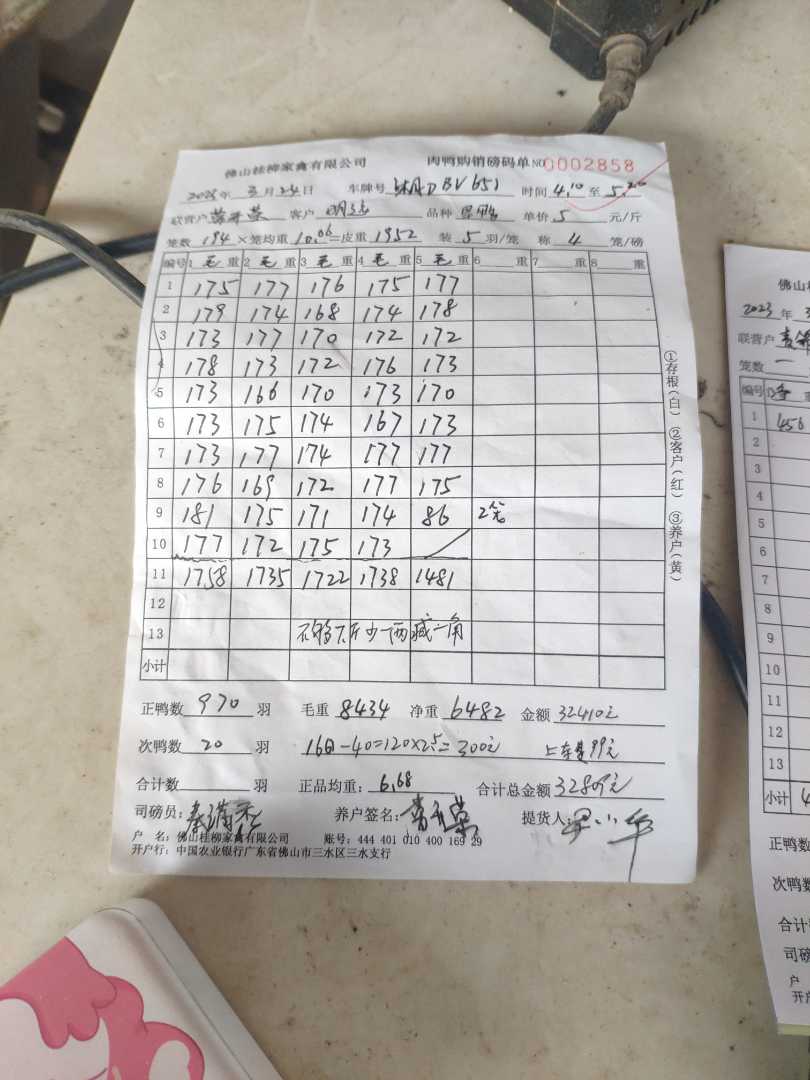 佛山桂柳家禽有限公司 肉鸭购销磅码单 NO0002858
2023年 3月 24日 车牌号 DBV651 时间 4.10 至 5.20
联营户 客户 品种 单价 5 元/斤
笼数 194 ×笼均重 10.06 =皮重 1952 装 5 羽/笼 称 4 笼/磅
编号 1 毛 重 2 毛 重 3 毛 重 4 毛 重 5 毛 重 6 重 7 重 8 重
1 175 177 176 175 177
2 179 174 168 174 178
3 173 177 170 172 172
4 178 173 172 176 173
5 173 166 170 173 170
6 173 175 174 167 173
7 173 177 174 177 177
8 176 169 172 177 175
9 181 175 171 174 86 2笼
10 177 172 175 173
11 1758 1735 1722 1738 1481
12
13 不够 斤少一两减一角
小计
正鸭数 970 羽 毛重 8434 净重 6482 金额 32410元
次鸭数 20 羽 160-40=120×2.5=300元 上车费99元
合计数 羽 正品均重: 6.68 合计总金额 32809元
司磅员: 养户签名: 提货人:
户 名: 佛山桂柳家禽有限公司 账号: 444 401 010 400 169 29
开户行: 中国农业银行广东省佛山市三水区三水支行
①存根(白) ②客户(红) ③养户(黄)
佛山
2023 年
联营户
笼数
编号 重
1 456
2
3
4
5
6
7
8
9
10
11
12
13
小计
正鸭数
次鸭数
合计
司磅
户
开户